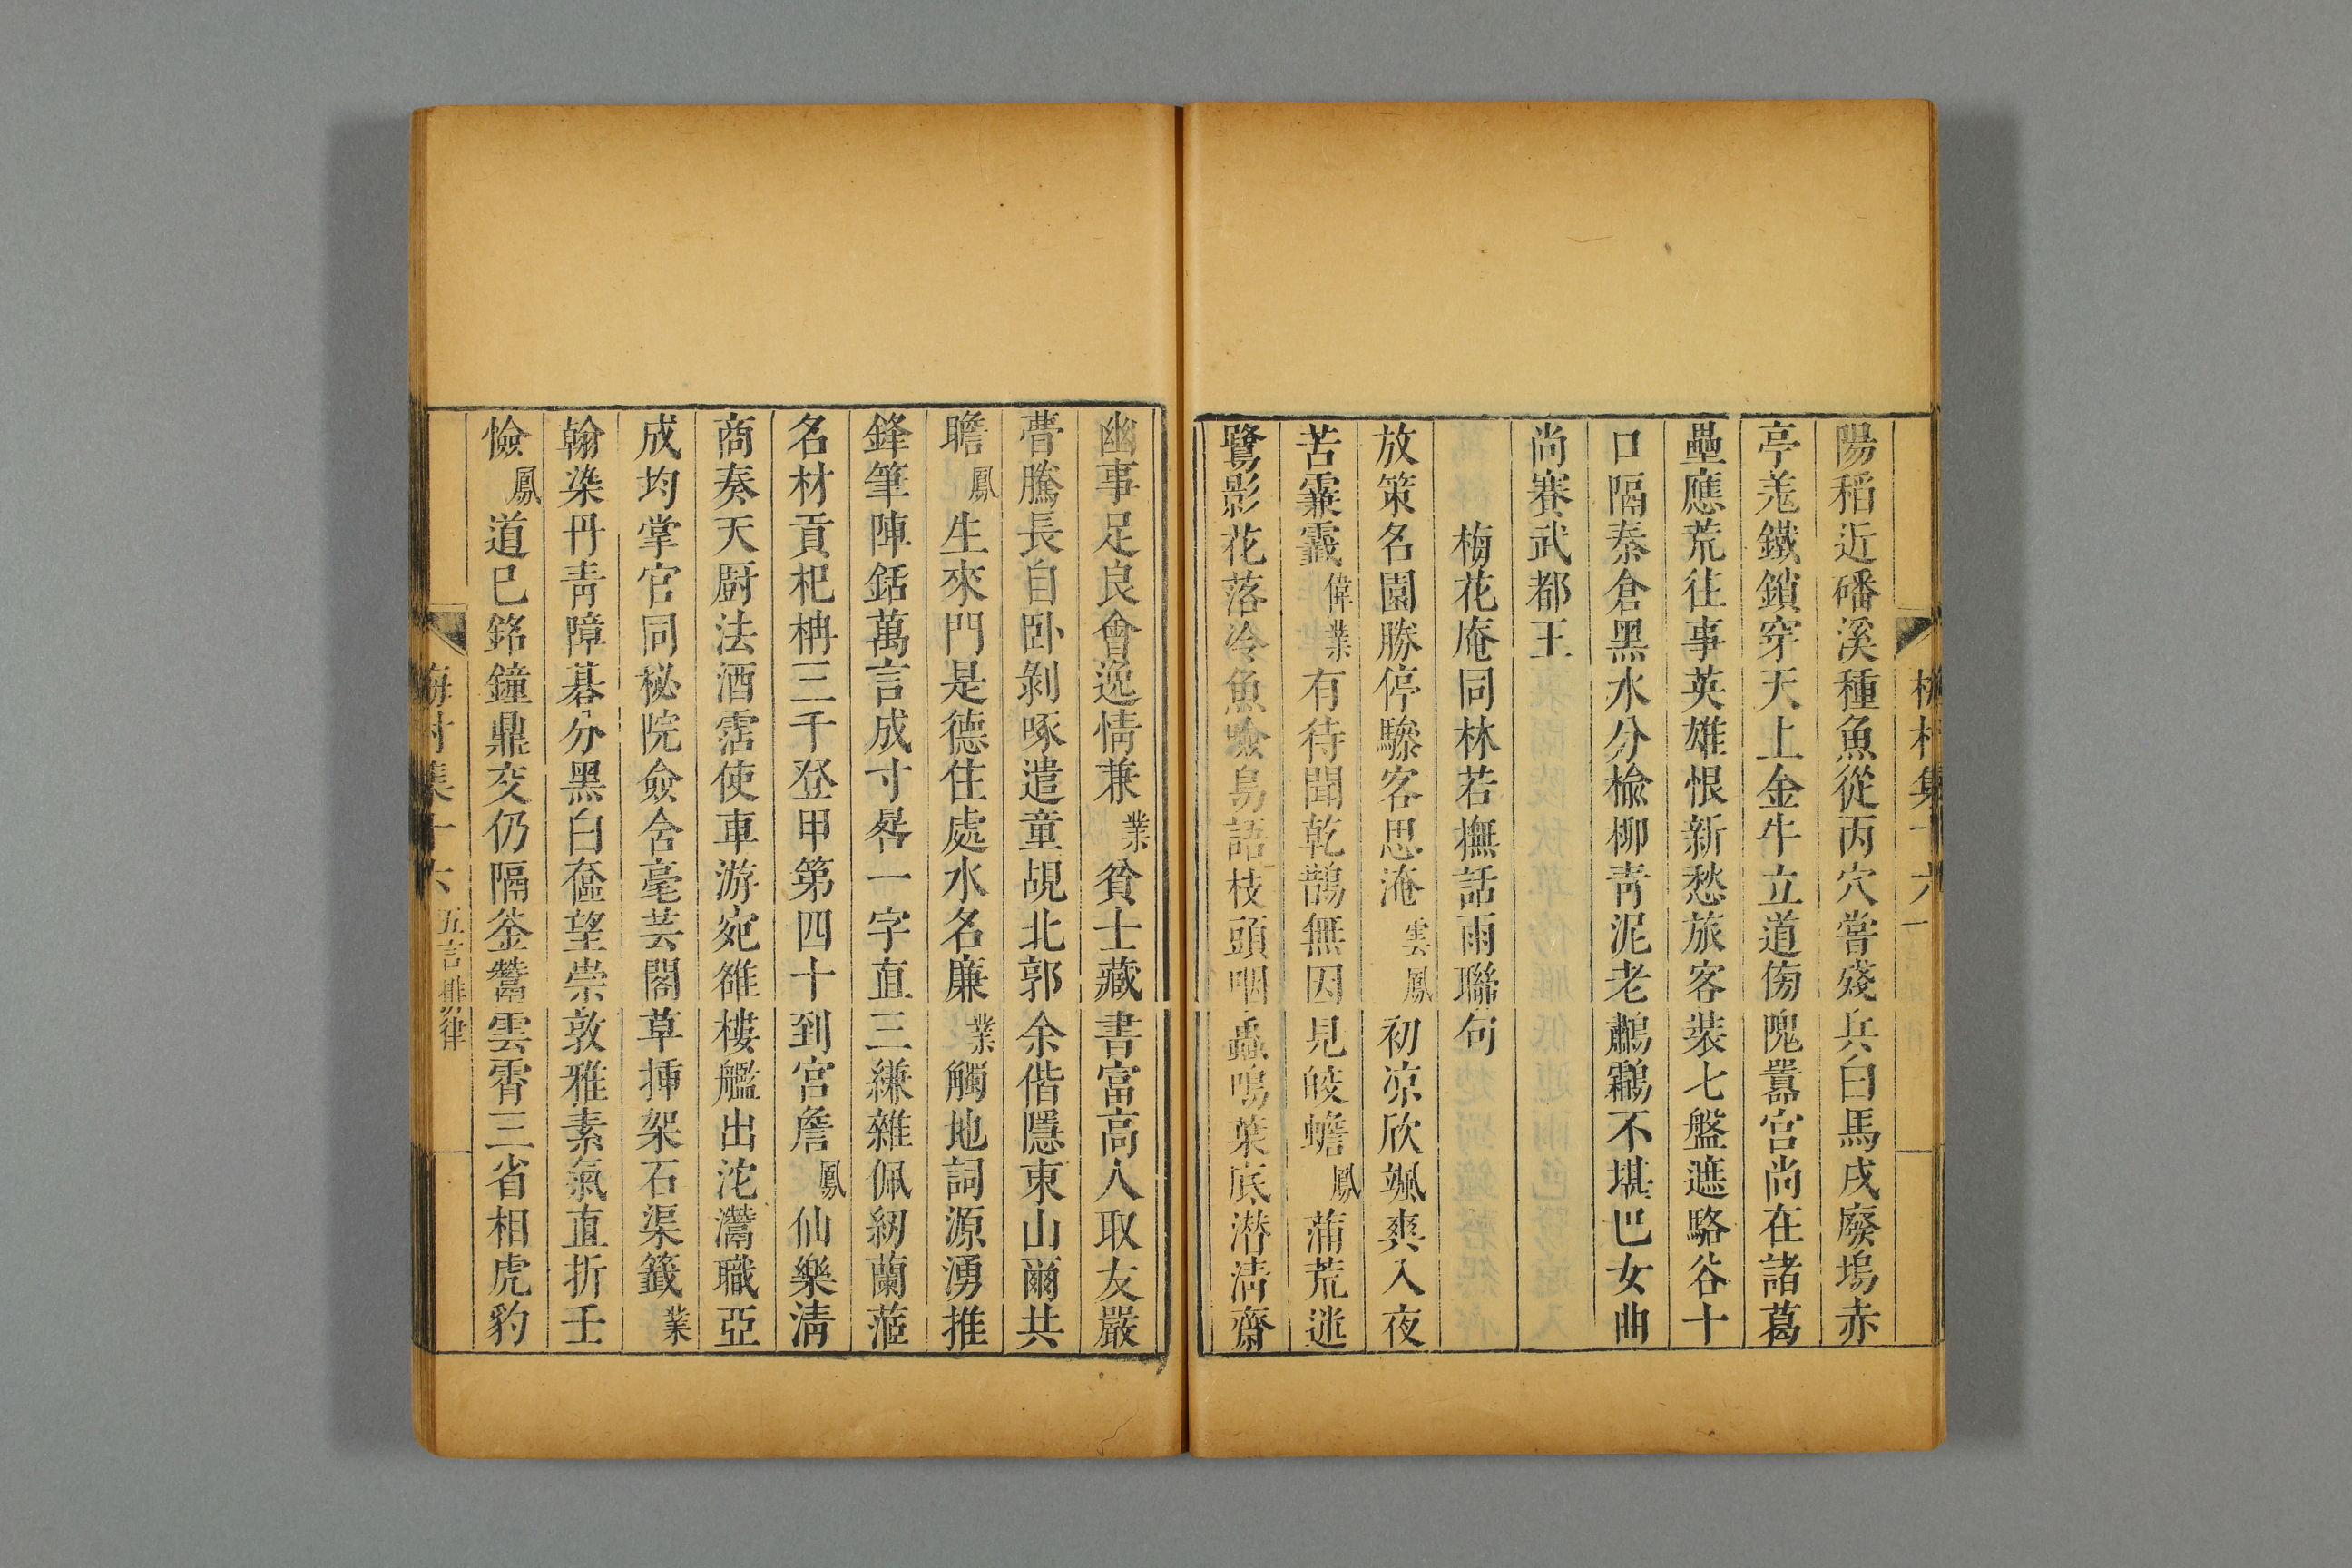 陽稻近磻溪種魚從丙穴嘗殘兵白馬戍廢塢赤
亭羗鐵鎖穿天上金牛立道傍隗囂宮尚在諸葛
壘應荒往事英雄恨新愁旅客裝七盤遮駱谷十
口隔秦倉黑水分榆柳靑泥老鸕鷀不堪巴女曲
尚賽武都王
梅花庵同林若撫話雨聯句
放策名園勝停驂客思淹雲鳳初凉欣颯爽入夜
苦霢霂偉業有待聞乾鵲無因見皎蟾鳳蒲荒迷
鷺影花落冷魚噞鳥語枝頭咽蟲鳴葉底潜淸齋
幽事足良會逸情兼業貧士藏書富高人取友嚴
瞢騰長自卧剝啄遣童覘北郭余偕隱東山爾共
瞻鳳生來門是德住處水名廉業觸地詞源湧推
鋒筆陣銛萬言成寸晷一字直三縑雜佩紉蘭茝
名材貢杞柟三千登甲第四十到宮詹鳳仙樂淸
商奏天厨法酒霑使車游宛雒樓艦出沱灊職亞
成均掌官同秘院僉含毫芸閣草揷架石渠籤業
翰染丹靑障碁分黑白奩望崇敦雅素氣直折壬
憸鳳道已銘鐘鼎交仍隔釜鬵雲霄三省相虎豹
梅村集十六 五言排律